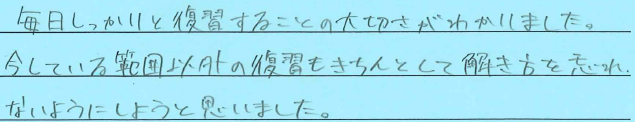 毎日しっかりと復習することの大切さがわかりました。
今している範囲以外の復習もきちんとして解き方を忘れ、
ないようにしようと思いました。